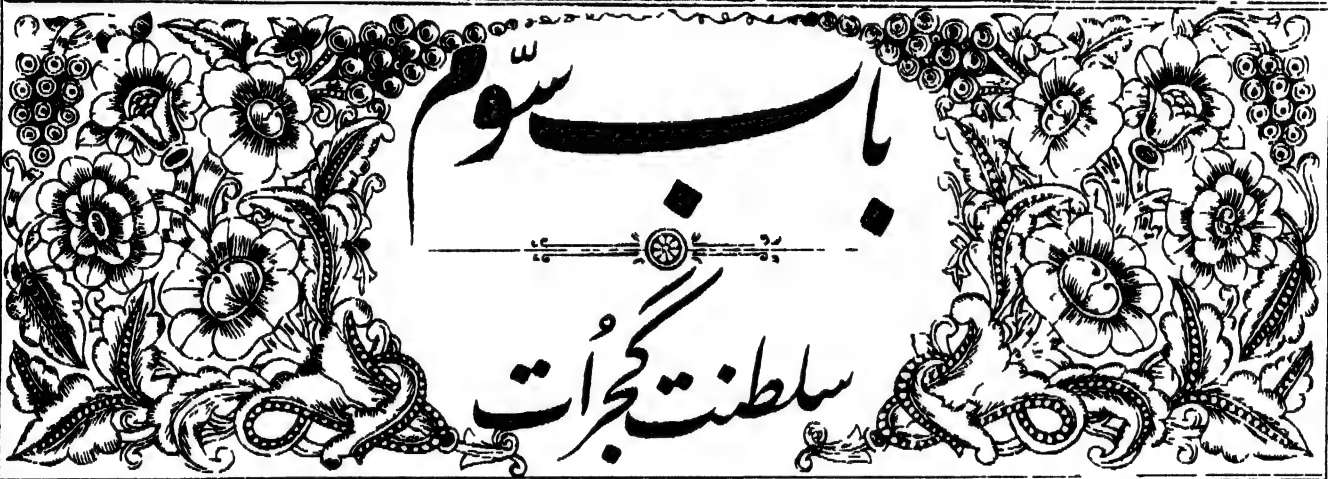 باب سوّم
سلطنت گجرات